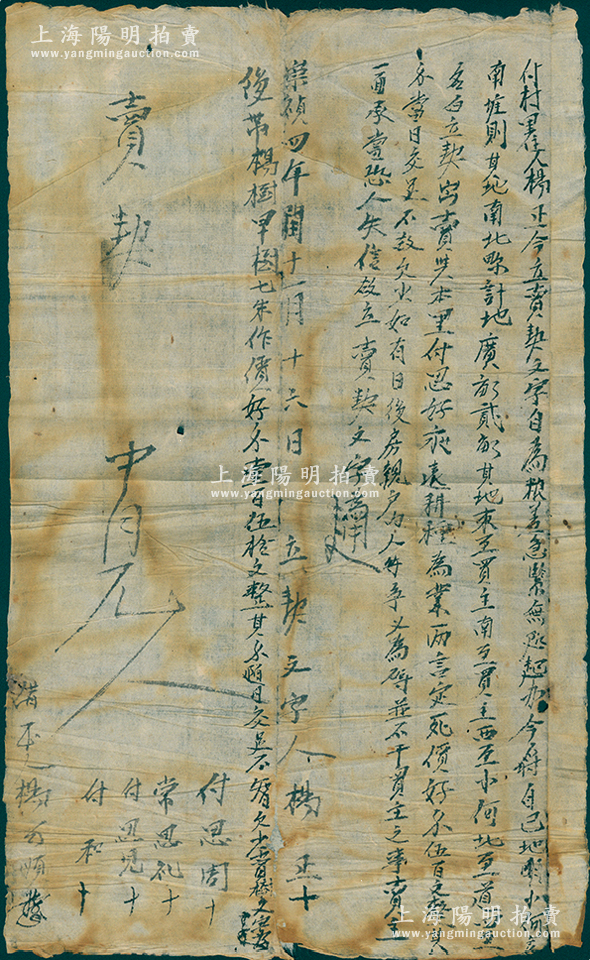 付村里住人楊正今立賣契文字自為粮差急緊無處起办今將自己地小河
南堆則其地南北畛計地廣畝貳畝其地東至買主南至買主西至小河北至道
名白立契出賣與本里付思好永遠耕種為業兩言定死價好錢伍百文
當日交足不致欠少如有日後房親戶內人等爭义為碍並不干買主之事賣主
一面承當恐人失信故立賣契文字為用
崇禎四年閏十一月十六日立契文字人楊正十
後帶楊樹甲樹七朱作價好壹百伍拾文整其日交足不欠少
賣契
中見人
付思周十
常思礼十
付思寬十
付和十
楊
上海陽明拍賣
www.yangmingauction.com
上海陽明拍賣
www.yangmingauction.com
上海陽明拍賣
www.yangmingauction.com